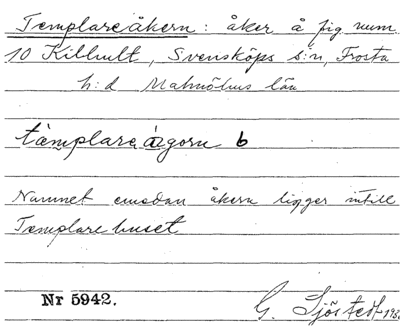 Templareåkern: åker å fig num.
10 Killhult, Svensköps s:n, Frosta
h:d Malmöhus län
tàmplare ágorn b
Namnet emedan åkern ligger intill
Templarehuset
Nr 5942. G. Sjöstedt